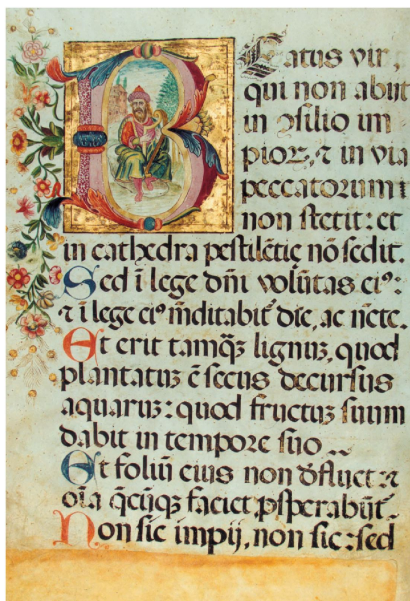 BEatus vir,
qui non abiit
in ↄsilio im
pioꝝ, ⁊ in via
peccatorum
non stetit: et
in cathedra pestilētie nō sedit.
Sed ī lege dn̄i volūtas eiꝰ:
⁊ ī lege eiꝰ m̄ditabit᷑ die, ac n̄cte.
Et erit tamqȝ lignuȝ, quod
plantatuȝ ē secus decursus
aquaruȝ: quod fructuȝ suum
dabit in tempore suo
Et foliū eius non dfluet: ⁊
oīa q̄cūqȝ faciet, ꝓsperabūt᷑.
Non sic impij, non sic: sed